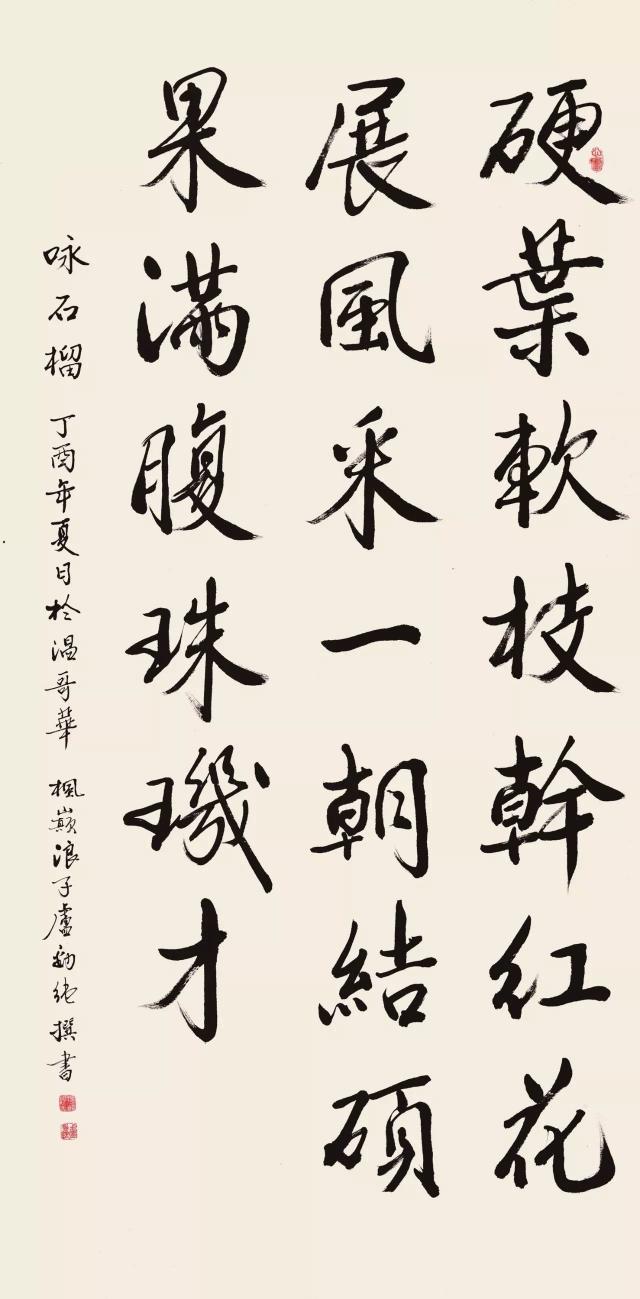 硬葉軟枝幹紅花
展風采一朝結碩
果滿腹珠璣才
咏石榴 丁酉年夏日於温哥華 楓巔浪子盧 撰書